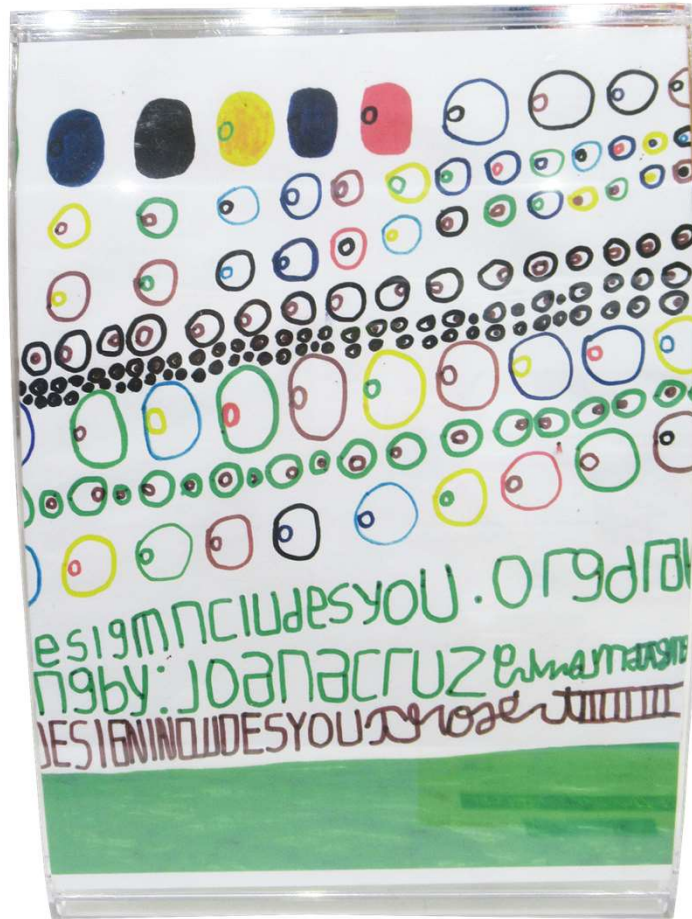 esignncludesyou.orgdraw
ngby:joanacruz
DESIGNINCLUDESYOU